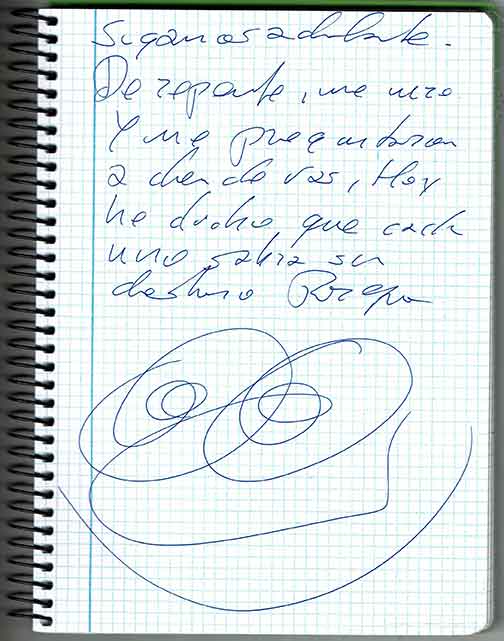 Sigamos adelante.
De repente, me miro
Y me preguntaron
a donde vas, Hoy
he dicho que cada
uno sabra su
destino